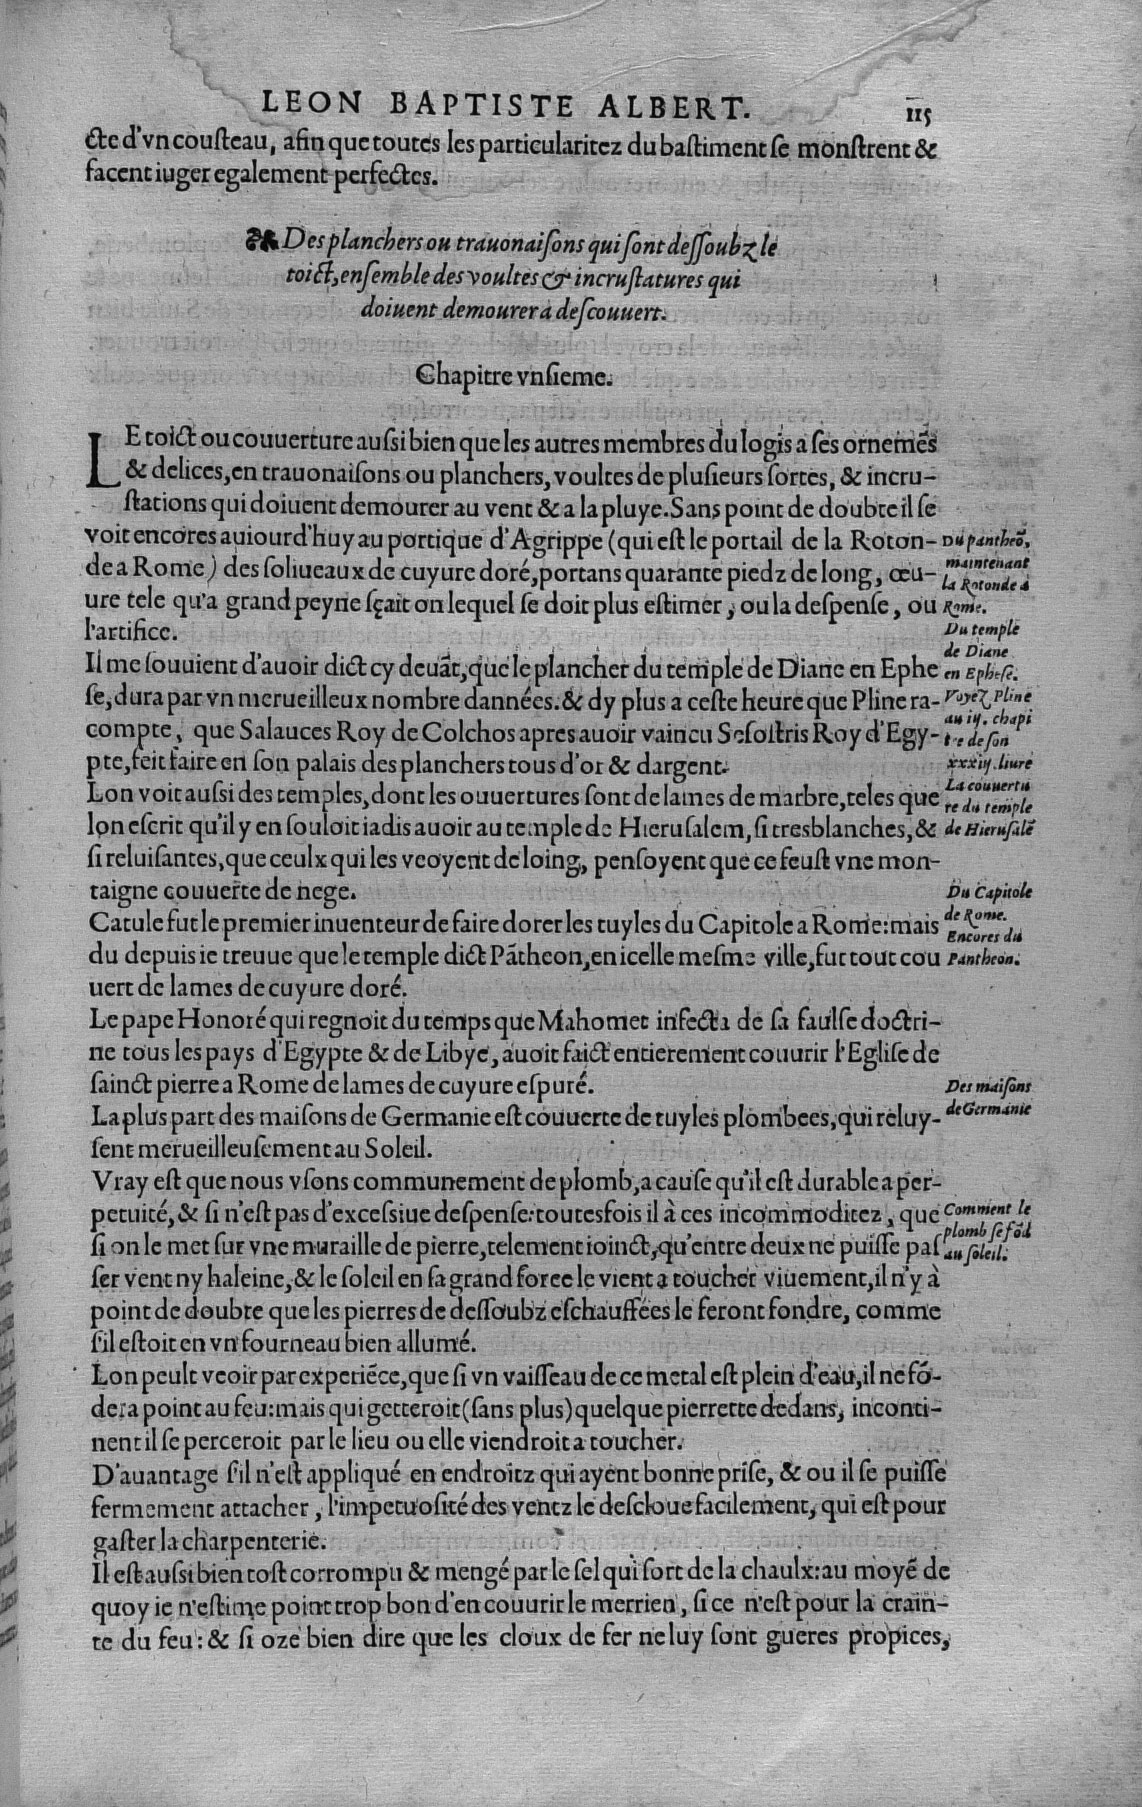 LEON BAPTISTE ALBERT. 115
cte d'vn cousteau, afin que toutes les particularitez du bastiment se monstrent &
facent iuger egalement perfectes.
Des planchers ou trauonaisons qui sont dessoubz le
toict, ensemble des voultes & incrustatures qui
doiuent demourer a descouuert.
Chapitre vnsieme.
LE toict ou couuerture aussi bien que les autres membres du logis a ses ornemẽs
& delices, en trauonaisons ou planchers, voultes de plusieurs sortes, & incru-
stations qui doiuent demourer au vent & a la pluye. Sans point de doubte il se
voit encores auiourd'huy au portique d'Agrippe (qui est le portail de la Roton-
de a Rome) des soliueaux de cuyure doré, portans quarante piedz de long, œu-
ure tele qu'a grand peyne sçait on lequel se doit plus estimer, ou la despense, ou
l'artifice.
Il me souuient d'auoir dict cy deuãt, que le plancher du temple de Diane en Ephe
se, dura par vn merueilleux nombre dannées. & dy plus a ceste heure que Pline ra-
compte, que Salauces Roy de Colchos apres auoir vaincu Sesostris Roy d'Egy-
pte, feit faire en son palais des planchers tous d'or & dargent.
Lon voit aussi des temples, dont les ouuertures sont de lames de marbre, teles que
lon escrit qu'il y en souloit iadis auoir au temple de Hierusalem, si tresblanches, &
si reluisantes, que ceulx qui les veoyent de loing, pensoyent que ce feust vne mon-
taigne couuerte de nege.
Catule fut le premier inuenteur de faire dorer les tuyles du Capitole a Rome: mais
du depuis ie treuue que le temple dict Pãtheon, en icelle mesme ville, fut tout cou
uert de lames de cuyure doré.
Le pape Honoré qui regnoit du temps que Mahomet infecta de sa faulse doctri-
ne tous les pays d'Egypte & de Libye, auoit faict entierement couurir l'Eglise de
sainct pierre a Rome de lames de cuyure espuré.
La plus part des maisons de Germanie est couuerte de tuyles plombees, qui reluy-
sent merueilleusement au Soleil.
Vray est que nous vsons communement de plomb, a cause qu'il est durable a per-
petuité, & si n'est pas d'excessiue despense: toutesfois il à ces incommoditez, que
si on le met sur vne muraille de pierre, telement ioinct, qu'entre deux ne puisse pas
ser vent ny haleine, & le soleil en sa grand force le vient a toucher viuement, il n'y à
point de doubte que les pierres de dessoubz eschauffées le feront fondre, comme
s'il estoit en vn fourneau bien allumé.
Lon peult veoir par experiẽce, que si vn vaisseau de ce metal est plein d'eau, il ne fõ-
dera point au feu: mais qui getteroit (sans plus) quelque pierrette dedans, inconti-
nent il se perceroit par le lieu ou elle viendroit a toucher.
D'auantage s'il n'est appliqué en endroitz qui ayent bonne prise, & ou il se puisse
fermement attacher, l'impetuosité des ventz le descloue facilement, qui est pour
gaster la charpenterie.
Il est aussi bien tost corrompu & mengé par le sel qui sort de la chaulx: au moyẽ de
quoy ie n'estime point trop bon d'en couurir le merrien, si ce n'est pour la crain-
te du feu: & si oze bien dire que les cloux de fer ne luy sont gueres propices,
Du pantheõ,
maintenant
la Rotonde a
Rome.
Du temple
de Diane
en Ephese.
Voyez Pline
au iij. chapi
tre de son
xxxiij. liure
La couuertu
re du temple
de Hierusalẽ
Du Capitole
de Rome.
Encores du
Pantheon.
Des maisons
de Germanie
Comment le
plomb se fõd
au soleil.